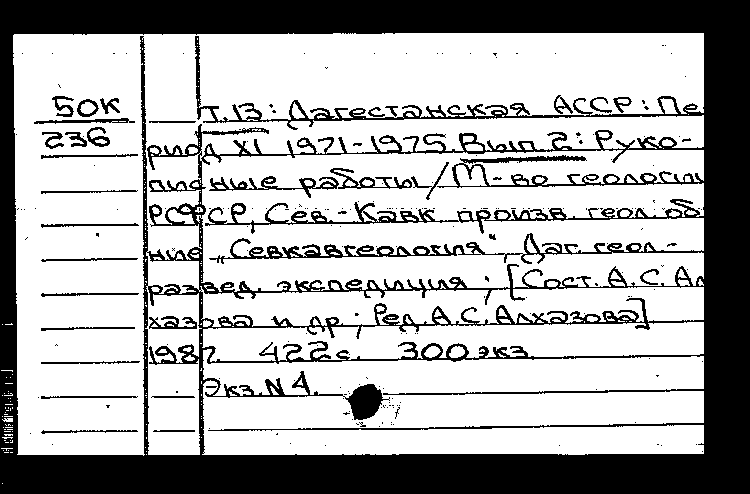 50К
236
Т.13: Дагестанская АССР: Пе
риод XI 1971-1975. Вып 2: Руко-
писные работы / М-во геологии
РСФСР, Сев.-Кавк произв. геол. об
ние „Севкавгеология", Даг. геол.-
развед. экспедиция; [Сост. А.С. Ал
хазова и др.; Ред. А.С. Алхазова]
1987. 422 с. 300 экз.
Экз. N 4.